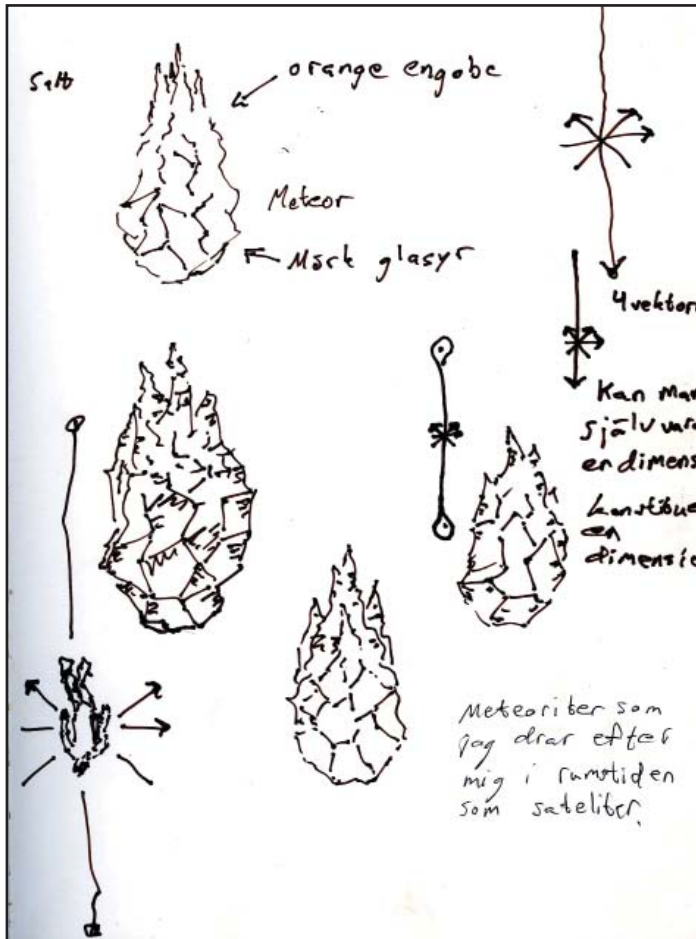 orange engobe
Meteor
Mörk glasyr
4 vektor
Kan man
själv vara
en dimens
en
dimensio
Meteoriter som
jag drar efter
mig i rumstiden
som sateliter.